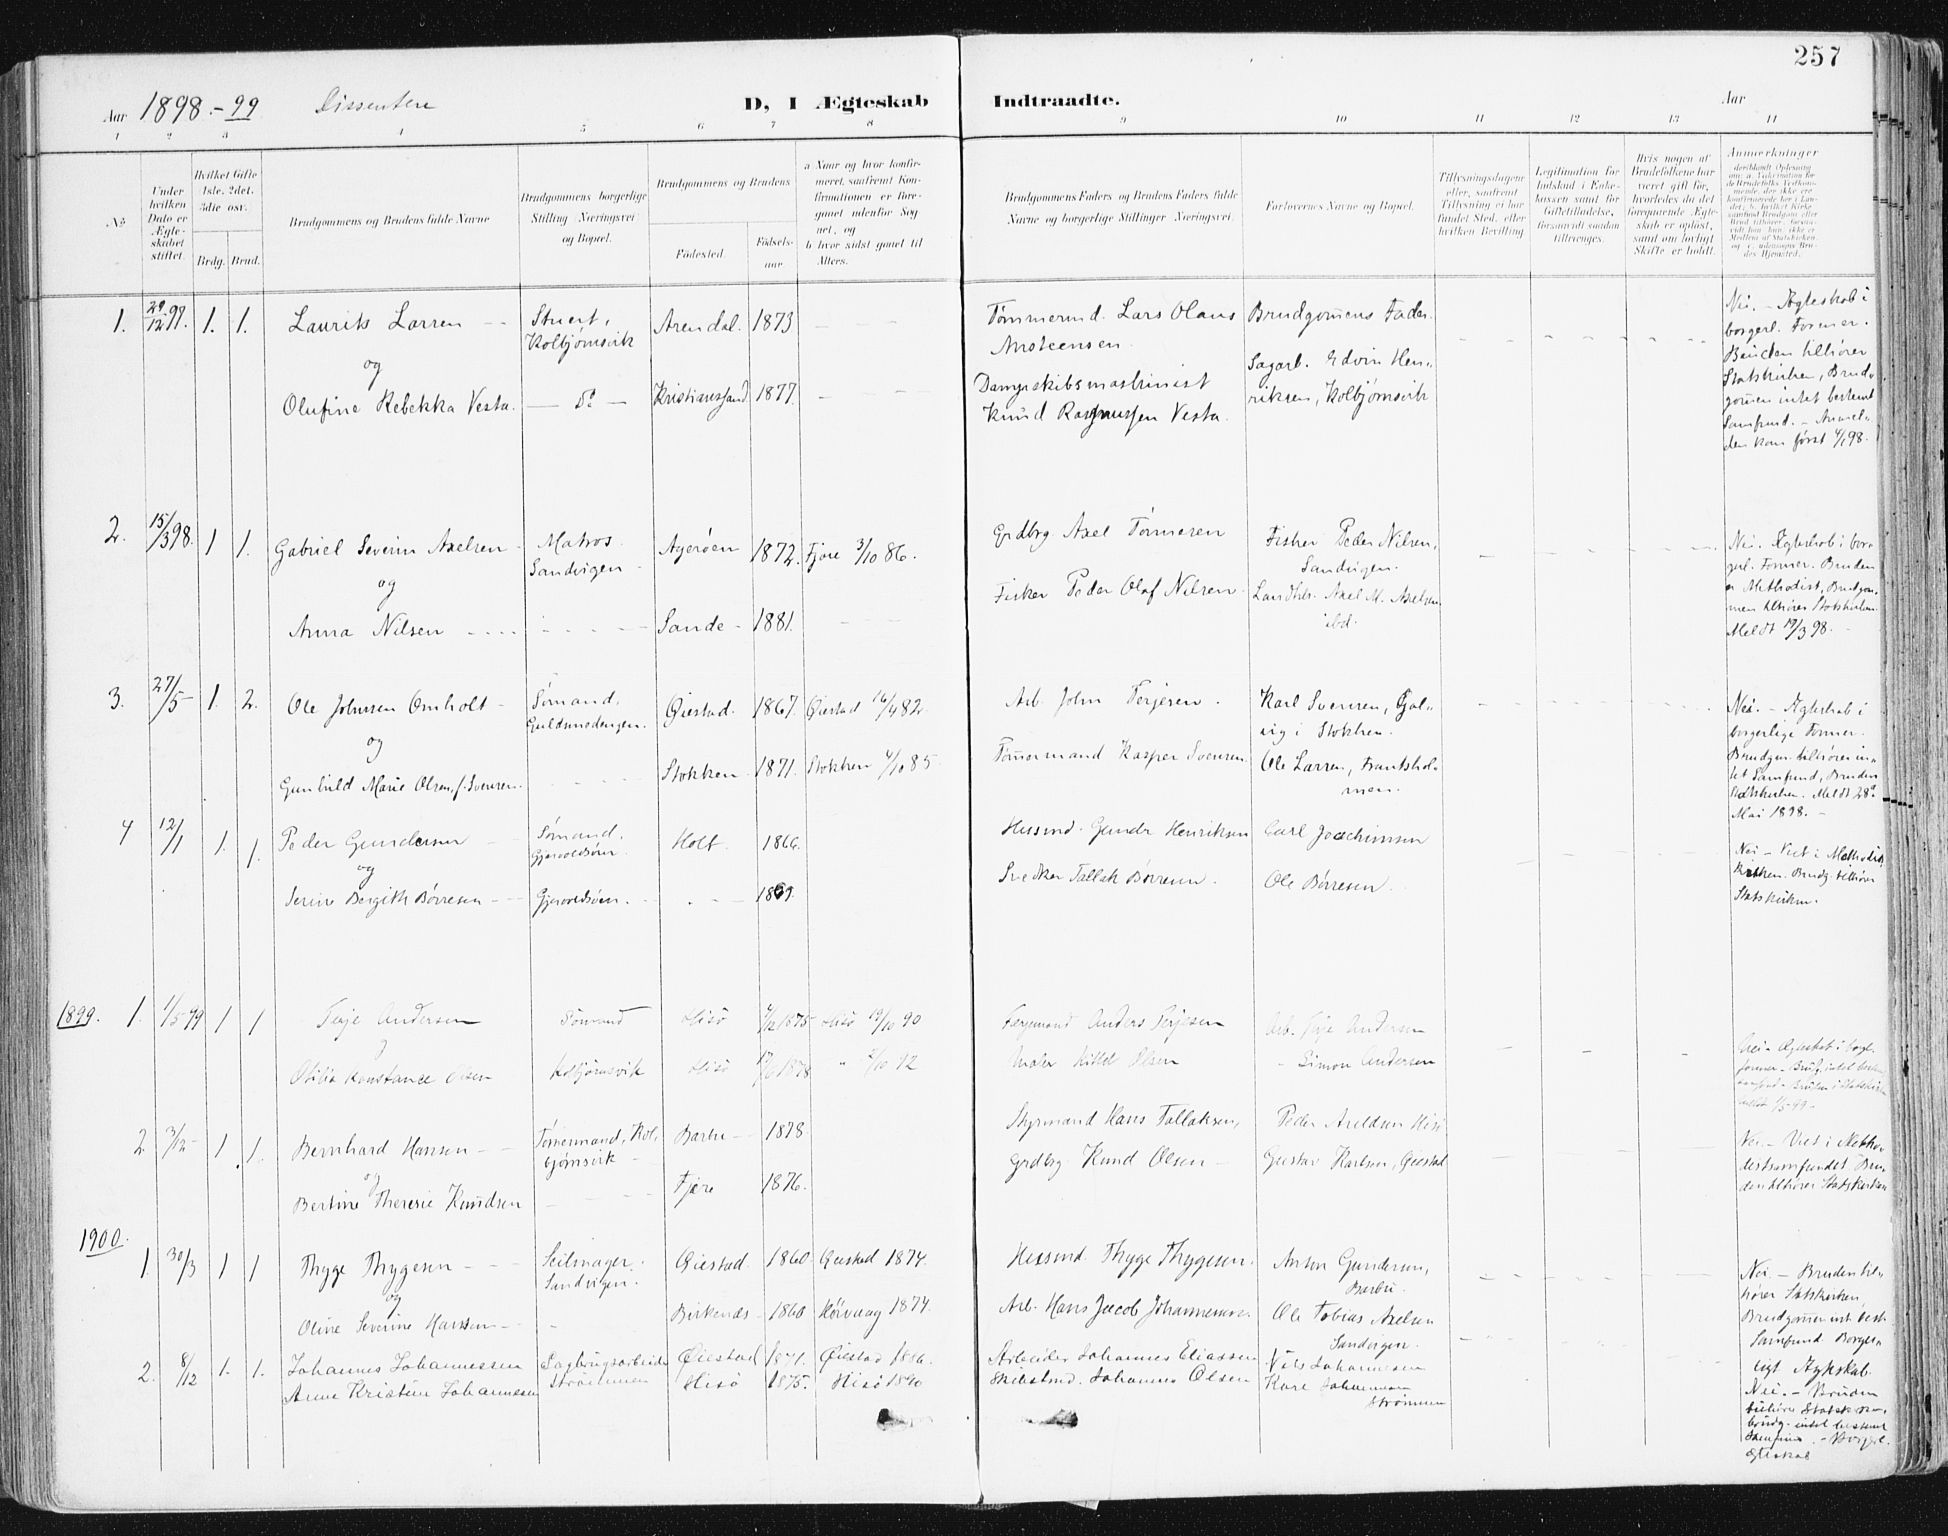 257
Aar 1898.-99 Dissentere D, I Ægteskab Indtraadte. Aar
1 2 3 4 5 6 7 8 9 10 11 12 13 14
No
Under hvilken Dato er Ægteskabet stiftet.
Hvilket Gifte 1ste. 2det. 3die osv.
Brdg. Brud.
Brudgommens og Brudens fulde Navne
Brudgommens borgerlige Stilling (Næringsvei) og Bopæl.
Brudgommens og Brudens
Fødested. Fødselsaar.
a Naar og hvor konfirmeret, saafremt Konfirmationen er foregaaet udenfor Sognet, og
b hvor sidst gaaet til Alters.
Brudgommens Faders og Brudens Faders fulde Navne og borgerlige Stillinger (Næringsvei).
Forlovernes Navne og Bopæl.
Tillysningsdagene eller, saafremt Tillysning ei har fundet Sted, efter hvilken Bevilling.
Legitimation for Indskud i Enkekassen samt for Giftetilladelse, forsaavidt saadan tiltrænges.
Hvis nogen af Brudefolkene har været gift før, hvorledes da det foregaaende Ægteskab er opløst, samt om lovligt Skifte er holdt.
Anmærkninger
1. 29/12 97. 1. 1. Laurits Larsen Stuert, Kolbjørnsvik Arendal. 1873
Tømmermd. Lars Olaus Ansteensen. Brudgommens Fader.
og
Olufine Rebekka Vesta. do Kristianssand 1877.
Dampskibsmaskinist Knud Rasmussen Vesta. Sagarb. Edvin Henriksen, Kolbjørnsvik
Nei. - Ægteskab i borgerl. Former. Bruden tilhører Statskirken, Brudgommen intet bestemt Samfund. - Anmelden kom først 4/1 98.
2. 15/3 98. 1 1. Gabriel Severin Axelsen Matros. Sandvigen Agerøen 1872. Fjære 3/10 86.
Grdbrg Axel Tørresen Fisker Peder Nilsen, Sandvigen.
og
Anna Nilsen Sande 1881.
Fisker Peder Olaf Nilsen. Landhdl. Axel M. Axelsen ibd.
Nei. Ægteskab i borgerl. Former. Bruden er Methodist, Brudgommen tilhører Statskirken. Meldt 19/3 98.
3. 27/5 1. 2. Ole Johnsen Omholt Sømand, Guldsmedengen. Øiestad. 1867. Øiestad 16/4 82.
Arb. John Terjesen. Karl Svensen, i Stokken.
og
Gunhild Marie Olsen, f. Svensen. Stokken 1871. Stokken 4/10 85.
Tømmermand Kasper Svensen. Ole Larsen,
Nei. - Ægteskab i borgerlige Former. Brudgm. tilhører intet Samfund, Bruden Statskirken. Meldt 28de Mai 1898.
4 12/1 1. 1. Peder Gundersen Sømand, Gjervoldsøen. Holt. 1866.
Husmd. Gundr Henriksen Carl Joachimsen
og
Serine Bergith Børresen Gjervoldsøen. 1869.
Snedker Tallak Børresen. Ole Børresen.
Nei - Viet i Methodistkirken. Brudg. tilhører Statskirken.
1899. 1. 1/5 99 1 1 Terje Andersen Sømand Hisö 1875 Hisö 19/10 90
Færgemand Anders Terjesen Arb. Terje Andersen
Otilia Konstance Olsen Kolbjørnsvik Hisö 1878 " 2/10 92
Maler Kittel Olsen Simon Andersen
Nei - Ægteskab i borgl. former - Brudg. intet bestemt samfund - Bruden i Statskirken Meldt 1/5 99
2 3/12 1 1. Bernhard Hansen Tømmermand, Kolbjørnsvik Barbu 1878
Styrmand Hans Tallaksen, Peder Hisö
og
Bertine Theresie Knudsen Fjære 1876.
Grdbrg. Knud Olsen Gustav Karlsen, Øiestad
Nei. - Viet i Methodistsamfundet. Bruden tilhører Statskirken
1900.
1. 30/3 1 1 Thyge Thygesen Seilmager. Sandvigen. Øiestad 1860 Øiestad 1874.
Husmd. Thyge Thygesen. Anton Gundersen, Barbu.
og
Oline Severine Hansen Birkenæs 1860 Høivaag 1874.
Arb. Hans Jacob Johannessen. Ole Tobias Axelsen Sandvigen.
Nei. - Bruden tilhører Statskirken, Brudgommen int. best. Samfund Borgerligt Ægteskab.
2. 8/12 1. 1. Johannes Johannessen Sagbrugsarbeider Øiestad 1871. Øiestad 1886.
Arbeider Johannes Eliassen Nils Johannesen
Anne Kristine Johannesen Strømmen Hisö 1875. Hisö 1890
Skibstmd. Johannes Olsen Karl Johannesen Strømmen
Nei. - Bruden tilhører Statskirken, brudg. intet bestemt Samfund. - Borgerl. Ægteskab